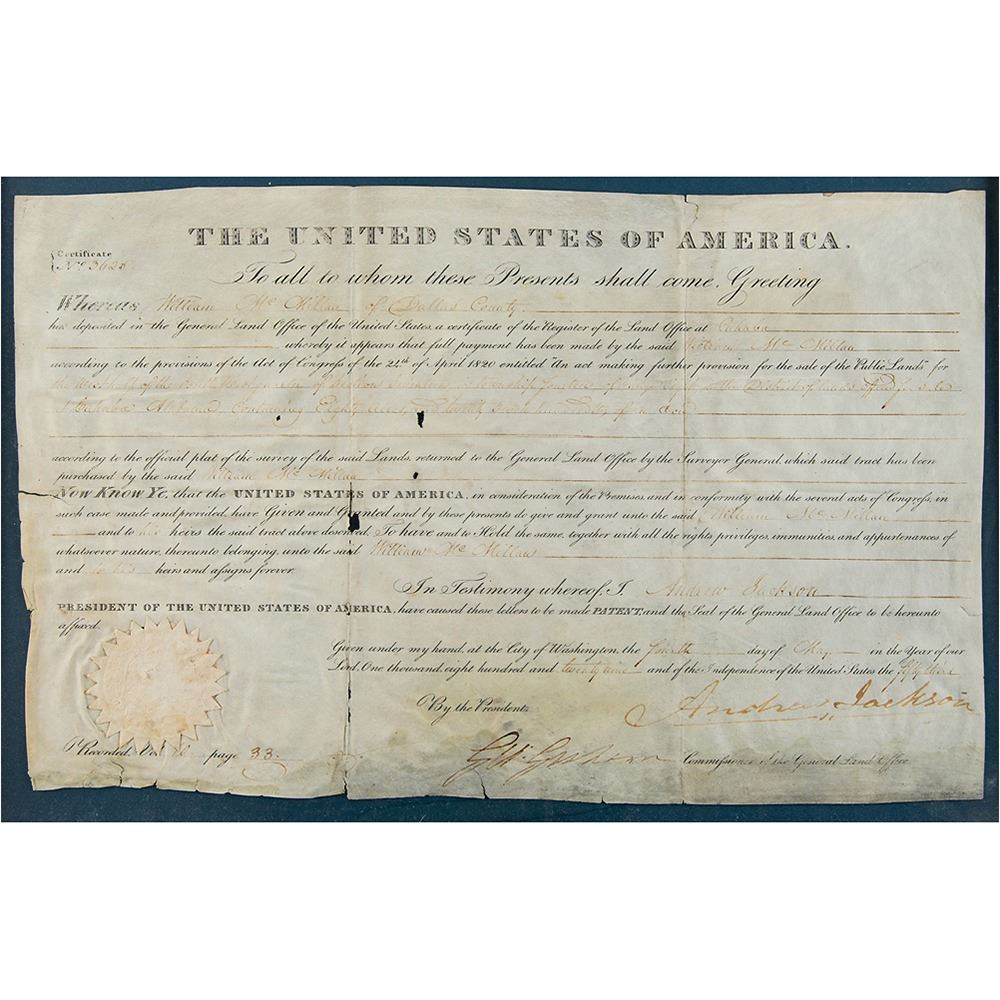 THE UNITED STATES OF AMERICA.
Certificate
No 3625
To all to whom these Presents shall come, Greeting
Whereas William Mc Millan of Dallas County
has deposited in the General Land Office of the United States, a certificate of the Register of the Land Office at Cahaba
whereby it appears that full payment has been made by the said William Mc Millan
according to the provisions of the Act of Congress of the 24th of April 1820 entitled "An act making further provision for the sale of the Public Lands" for
the West half of the quarter of Section in township fourteen of range in the District of lands offered for sale
at Cahaba Alabama, containing Eighty acres, and of an acre
according to the official plat of the survey of the said Lands, returned to the General Land Office by the Surveyor General, which said tract has been
purchased by the said William Mc Millan
Now Know Ye, that the UNITED STATES OF AMERICA, in consideration of the Premises, and in conformity with the several acts of Congress, in
such case made and provided, have Given and Granted and by these presents do give and grant unto the said William Mc Millan
and to his heirs the said tract above described: To have and to Hold the same, together with all the rights, privileges, immunities, and appurtenances of
whatsoever nature, thereunto belonging, unto the said William Mc Millan
and to his heirs and assigns forever.
In Testimony whereof, I, Andrew Jackson
PRESIDENT OF THE UNITED STATES OF AMERICA, have caused these letters to be made PATENT, and the Seal of the General Land Office to be hereunto
affixed.
Given under my hand, at the City of Washington, the fourth day of May in the Year of our
Lord, One thousand, eight hundred and twenty nine and of the Independence of the United States the fifty third
By the President
Andrew Jackson
Recorded, Vol page 33
G.W. Graham Commissioner of the General Land Office